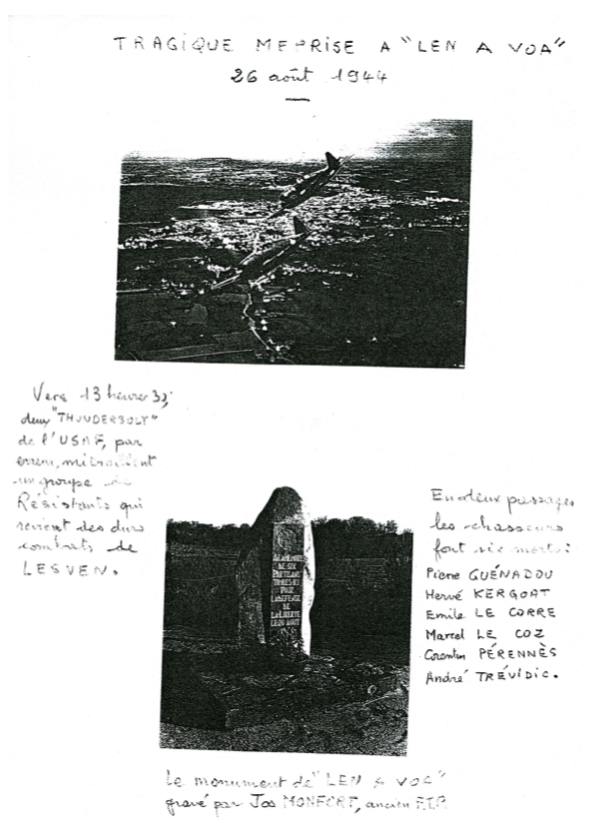 TRAGIQUE MEPRISE A "LEN A VOA"
26 août 1944
Vers 13 heures 30,
deux "THUNDERBOLT"
de l'USAF, par
erreur, mitraillent
un groupe de
Résistants qui
revient des durs
combats de
LESVEN.
En deux passages
les chasseurs
font six morts :
Pierre GUÉNADOU
Hervé KERGOAT
Emile LE CORRE
Marcel LE COZ
Corentin PÉRENNÈS
André TRÉVIDIC.
A LA MEMOIRE
DE SIX
PARTISANS
TOMBES ICI
POUR
LA DEFENSE
DE
LA LIBERTE
LE 26 AOUT
Le monument de "LEN A VOA"
gravé par Jos MONFORT, ancien F.T.P.